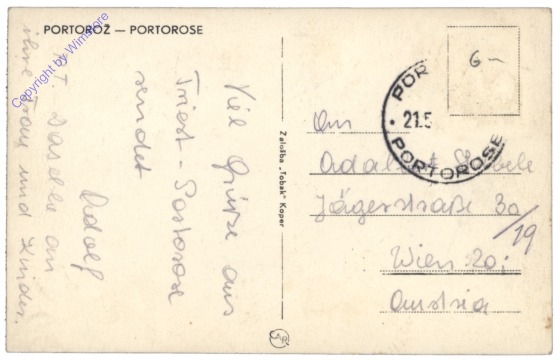 PORTOROŽ — PORTOROSE
Copyright by Winstore
Viel Grüße aus
Triest - Portorose
sendet
Adolf
NT. Dasselbe an
ihre Frau und Kinder.
Založba „Tobak" Koper
6-
POR
• 21.5
PORTOROSE
An
Jägerstraße 30
/19
Wien 20.
Austria